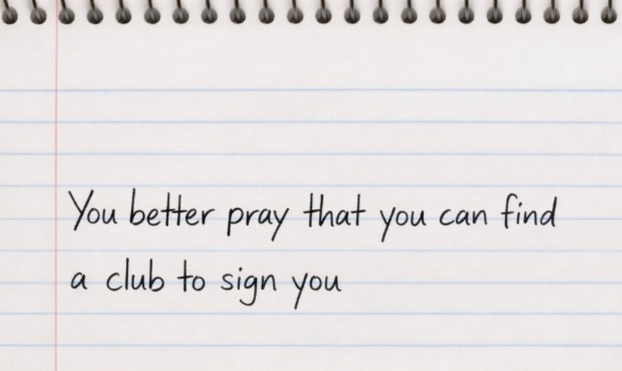 You better pray that you can find
a club to sign you